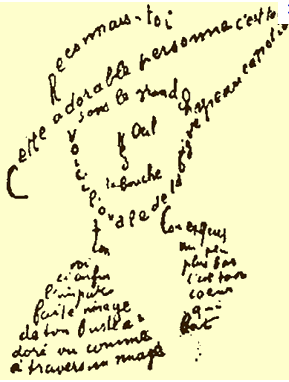 Reconnais-toi
Cette adorable personne c'est toi
sous le grand chapeau canotier
Oeil
Nez
la bouche
Voici l'ovale de ta figure
ton
cou
exquis
Voici enfin
l'impar
faite image
de ton buste a
doré vu comme
à travers un nuage
un peu
plus bas
c'est ton
coeur
qui
bat